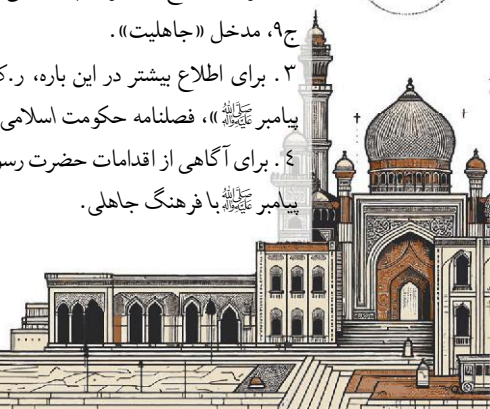 ج۹، مدخل «جاهلیت».
۳. برای اطلاع بیشتر در این باره، ر.ک
پیامبر ﷺ»، فصلنامه حکومت اسلامی
٤. برای آگاهی از اقدامات حضرت رسو
پیامبر ﷺ با فرهنگ جاهلی.